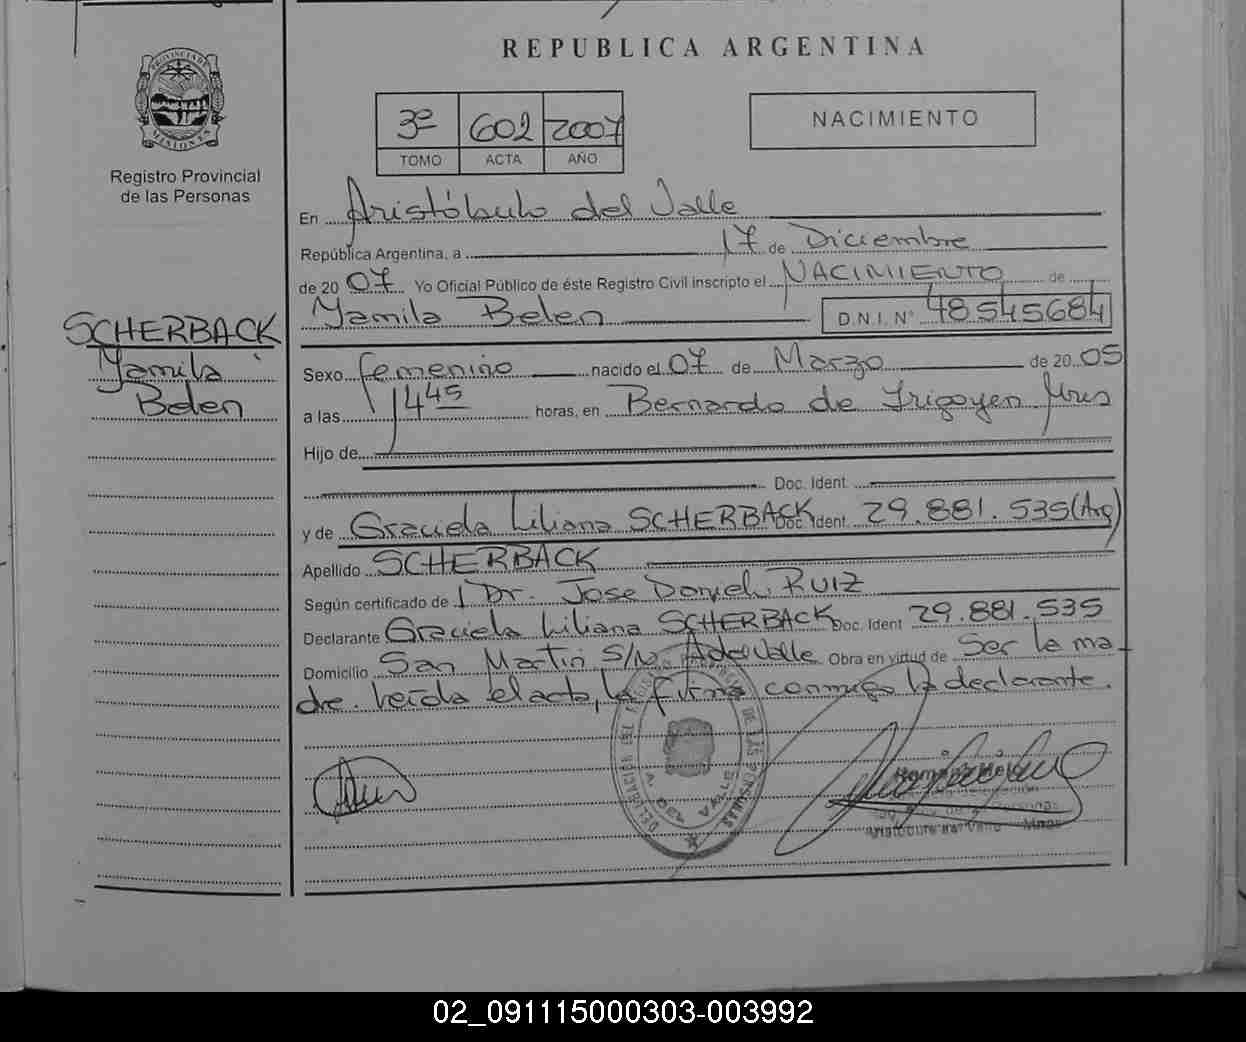 REPUBLICA ARGENTINA
PROVINCIA DE
MISIONES
Registro Provincial
de las Personas
3º 602 2007
TOMO ACTA AÑO
NACIMIENTO
En Aristóbulo del Valle
República Argentina, a 17 de Diciembre
de 20 07 Yo Oficial Público de éste Registro Civil inscripto el NACIMIENTO de
Yamila Belen D.N.I. Nº 48545684
SCHERBACK
Yamila
Belen
Sexo femenino nacido el 07 de Marzo de 20 05
a las 14 45 horas, en Bernardo de Irigoyen Mnes
Hijo de
Doc. Ident.
y de Graciela Liliana SCHERBACK Doc. Ident. 29.881.535 (Arg)
Apellido SCHERBACK
Según certificado de Dr. Jose Daniel RUIZ
Declarante Graciela Liliana SCHERBACK Doc. Ident 29.881.535
Domicilio San Martin S/N. A del Valle Obra en virtud de Ser la ma-
dre. leída el acta, la firma conmigo la declarante.
DE LAS PERSONAS
Aristobulo del Valle Mnes
02_091115000303-003992